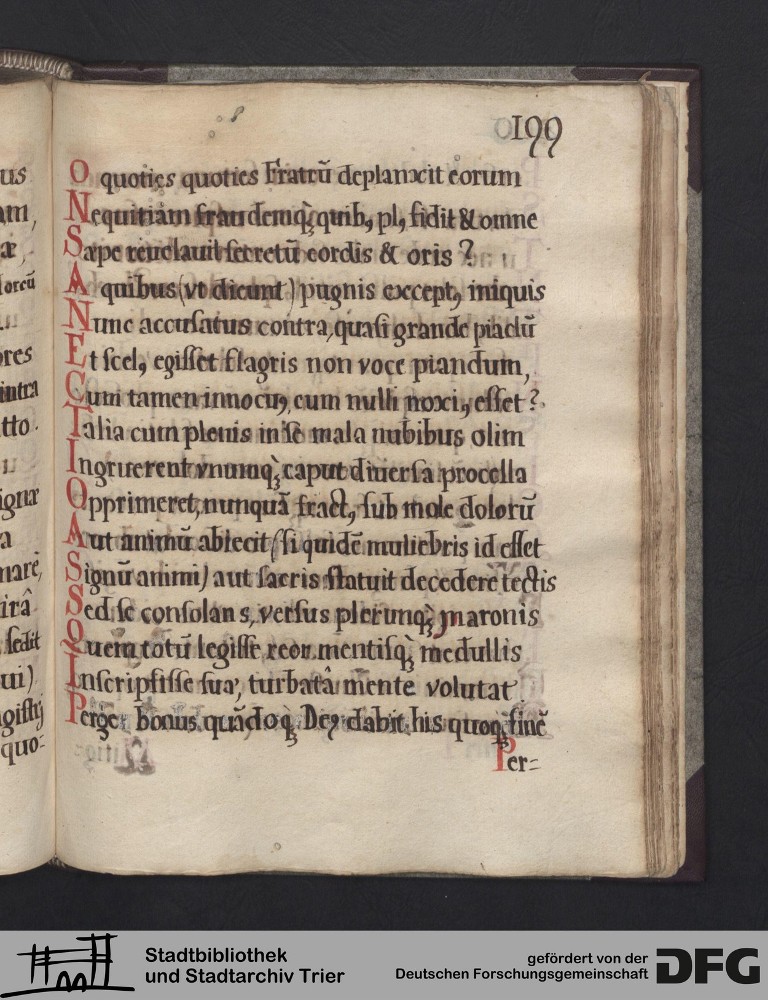 199
O quoties quoties Fratrũ deplanxit eorum
Nequitiam fraudemq̃ꝫ quibꝰ plꝰ fidit & omne
Sæpe reuelauit secretũ cordis & oris?
A quibus (vt dicunt) pugnis exceptꝰ iniquis
Nunc accusatus contra, quasi grande piaclũ
Et scelꝰ egisset flagris non voce piandum,
Cum tamen innocuꝰ, cum nulli noxiꝰ esset?
Talia cum plenis in se mala nubibus olim
Ingruerent vnumq̃ꝫ caput diuersa procella
Opprimeret, nunquã fractꝰ sub mole dolorũ
Aut animũ abiecit (si quidẽ muliebris id esset
Signũ animi) aut sacris statuit decedere tectis
Sed se consolans, versus plerunq̃ꝫ Maronis
Quem totũ legisse reor mentisq̃ꝫ medullis
Inscripsisse suæ, turbatâ mente volutat
Perge: bonus quãdoqꝫ Deꝰ dabit his quoqꝫ finẽ
Per=
us
am,
æ,
ores
intra
tto.
ignæ
a
marẽ,
irâ
sedit
ui)
quo=
Stadtbibliothek
und Stadtarchiv Trier
gefördert von der
Deutschen Forschungsgemeinschaft
DFG